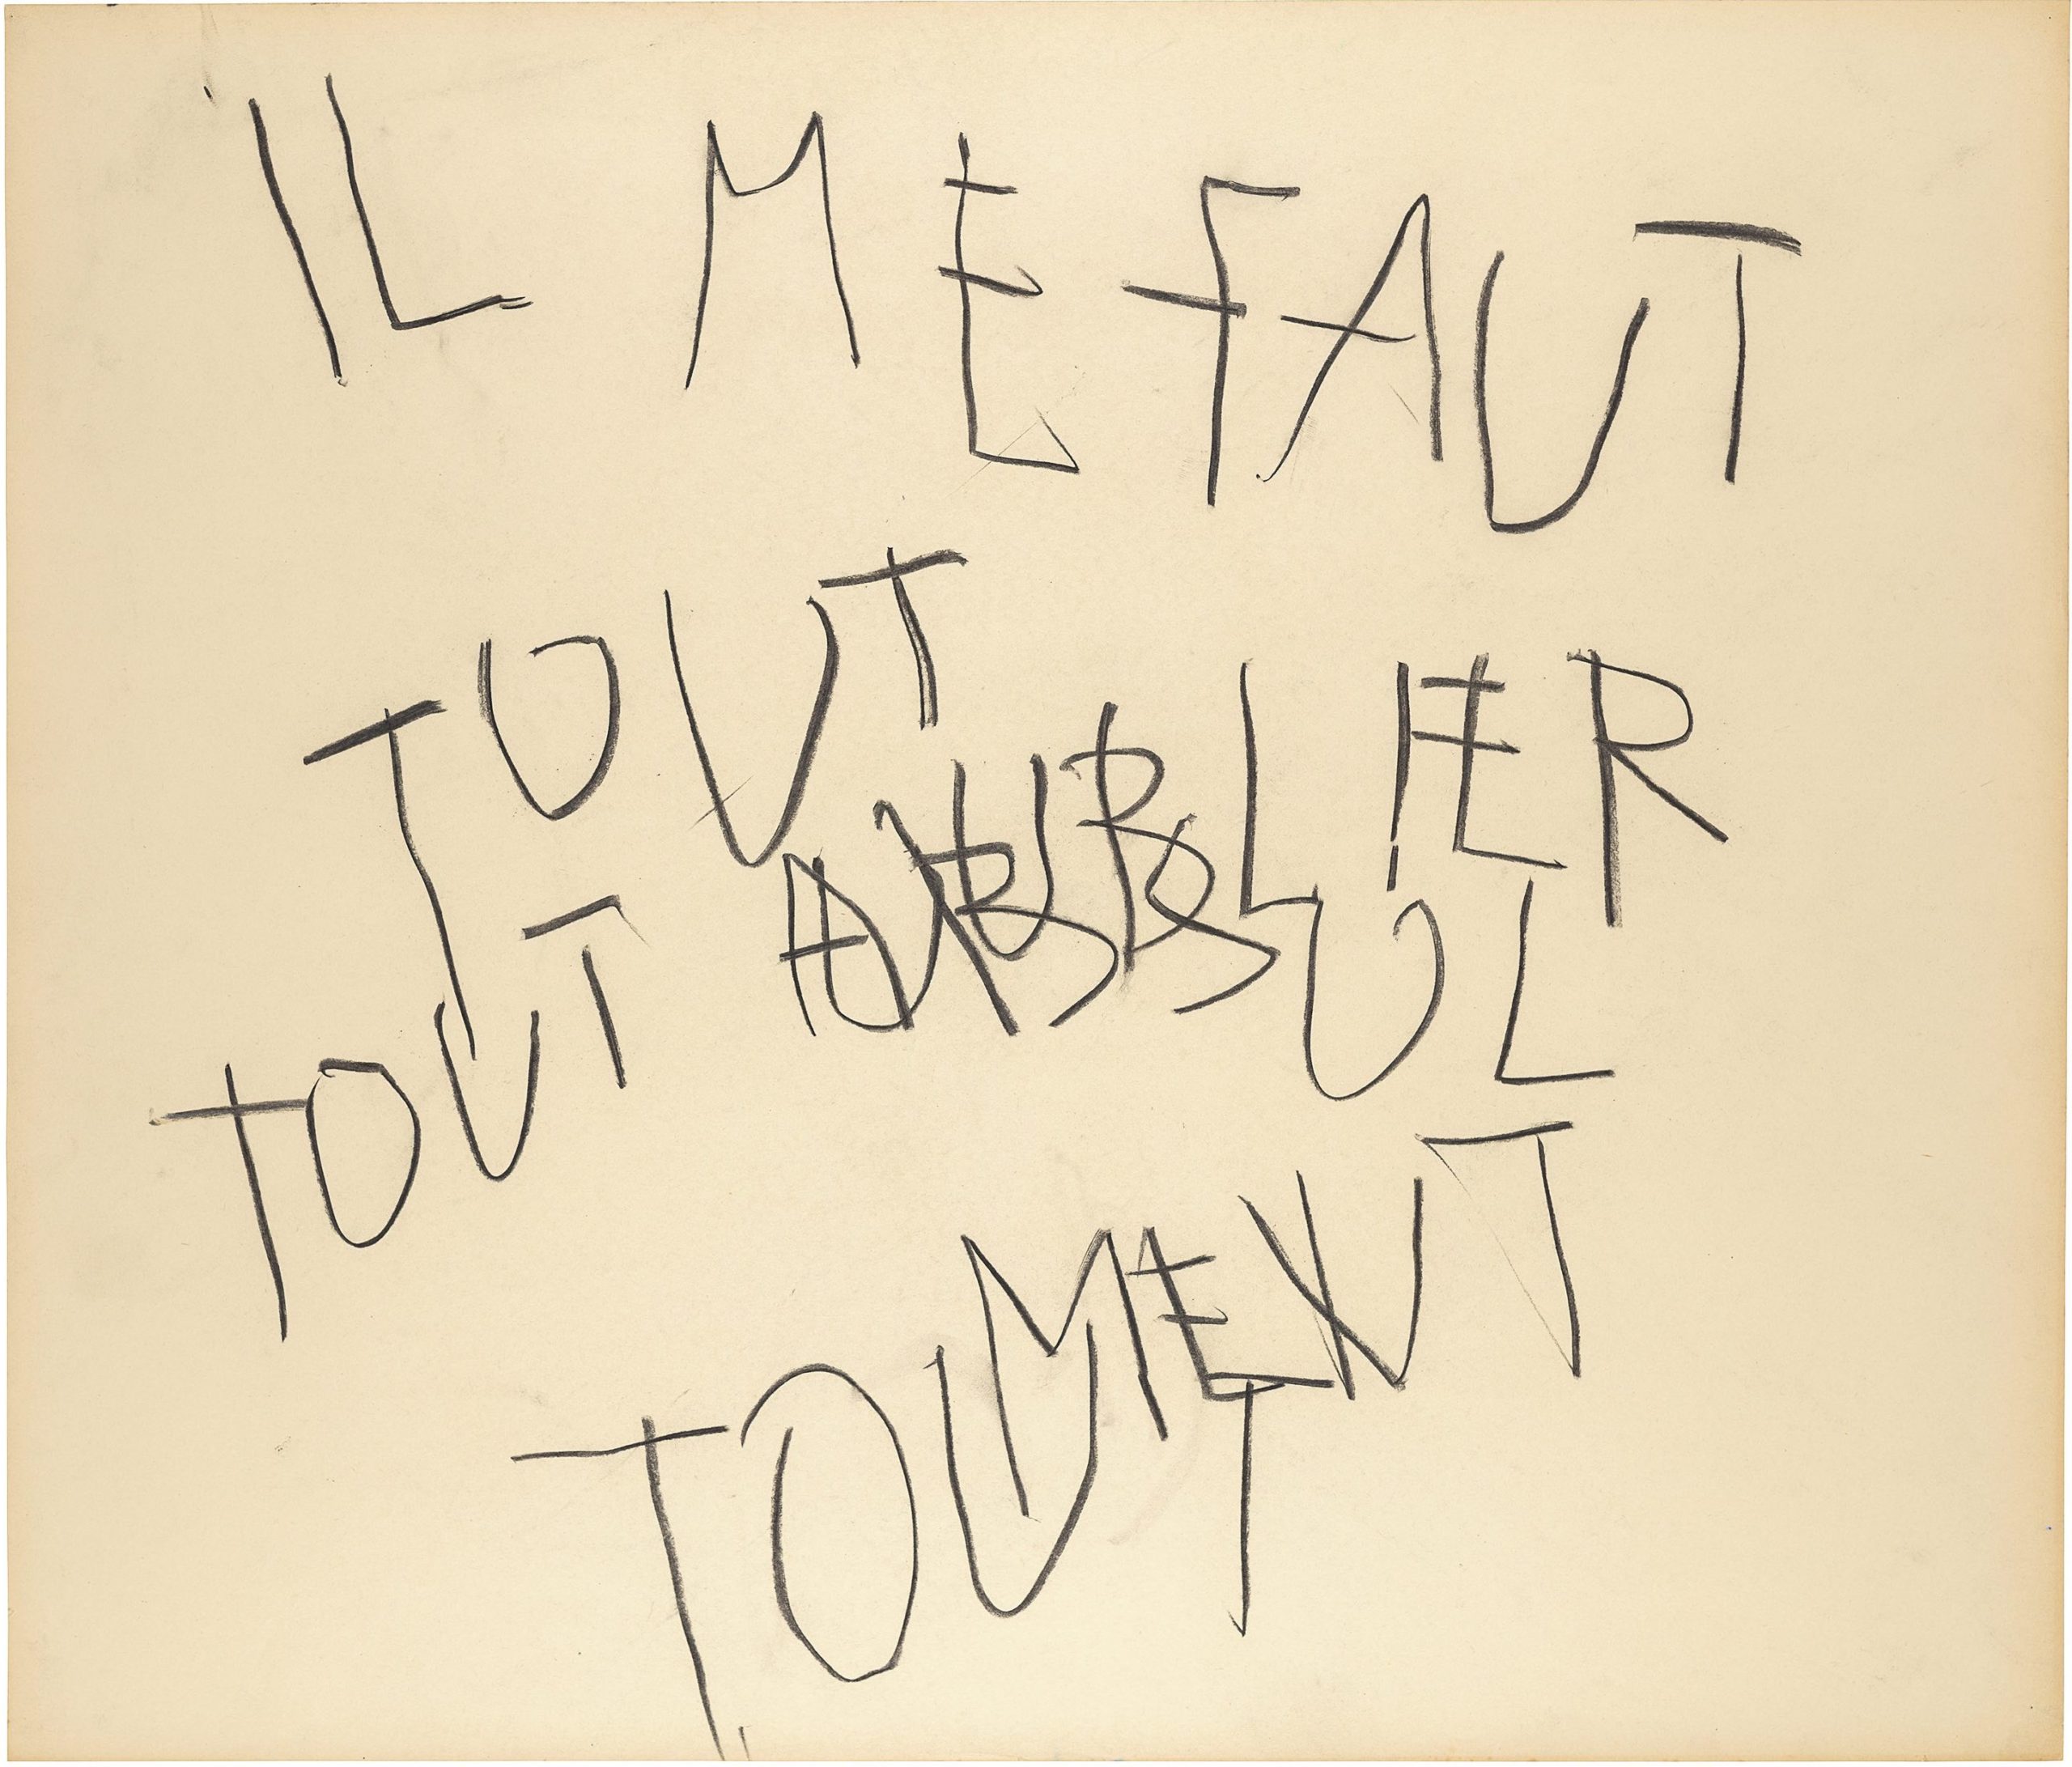 IL ME FAUT
TOUT OUBLIER
TOUT ABSOL
MENT
TOUT